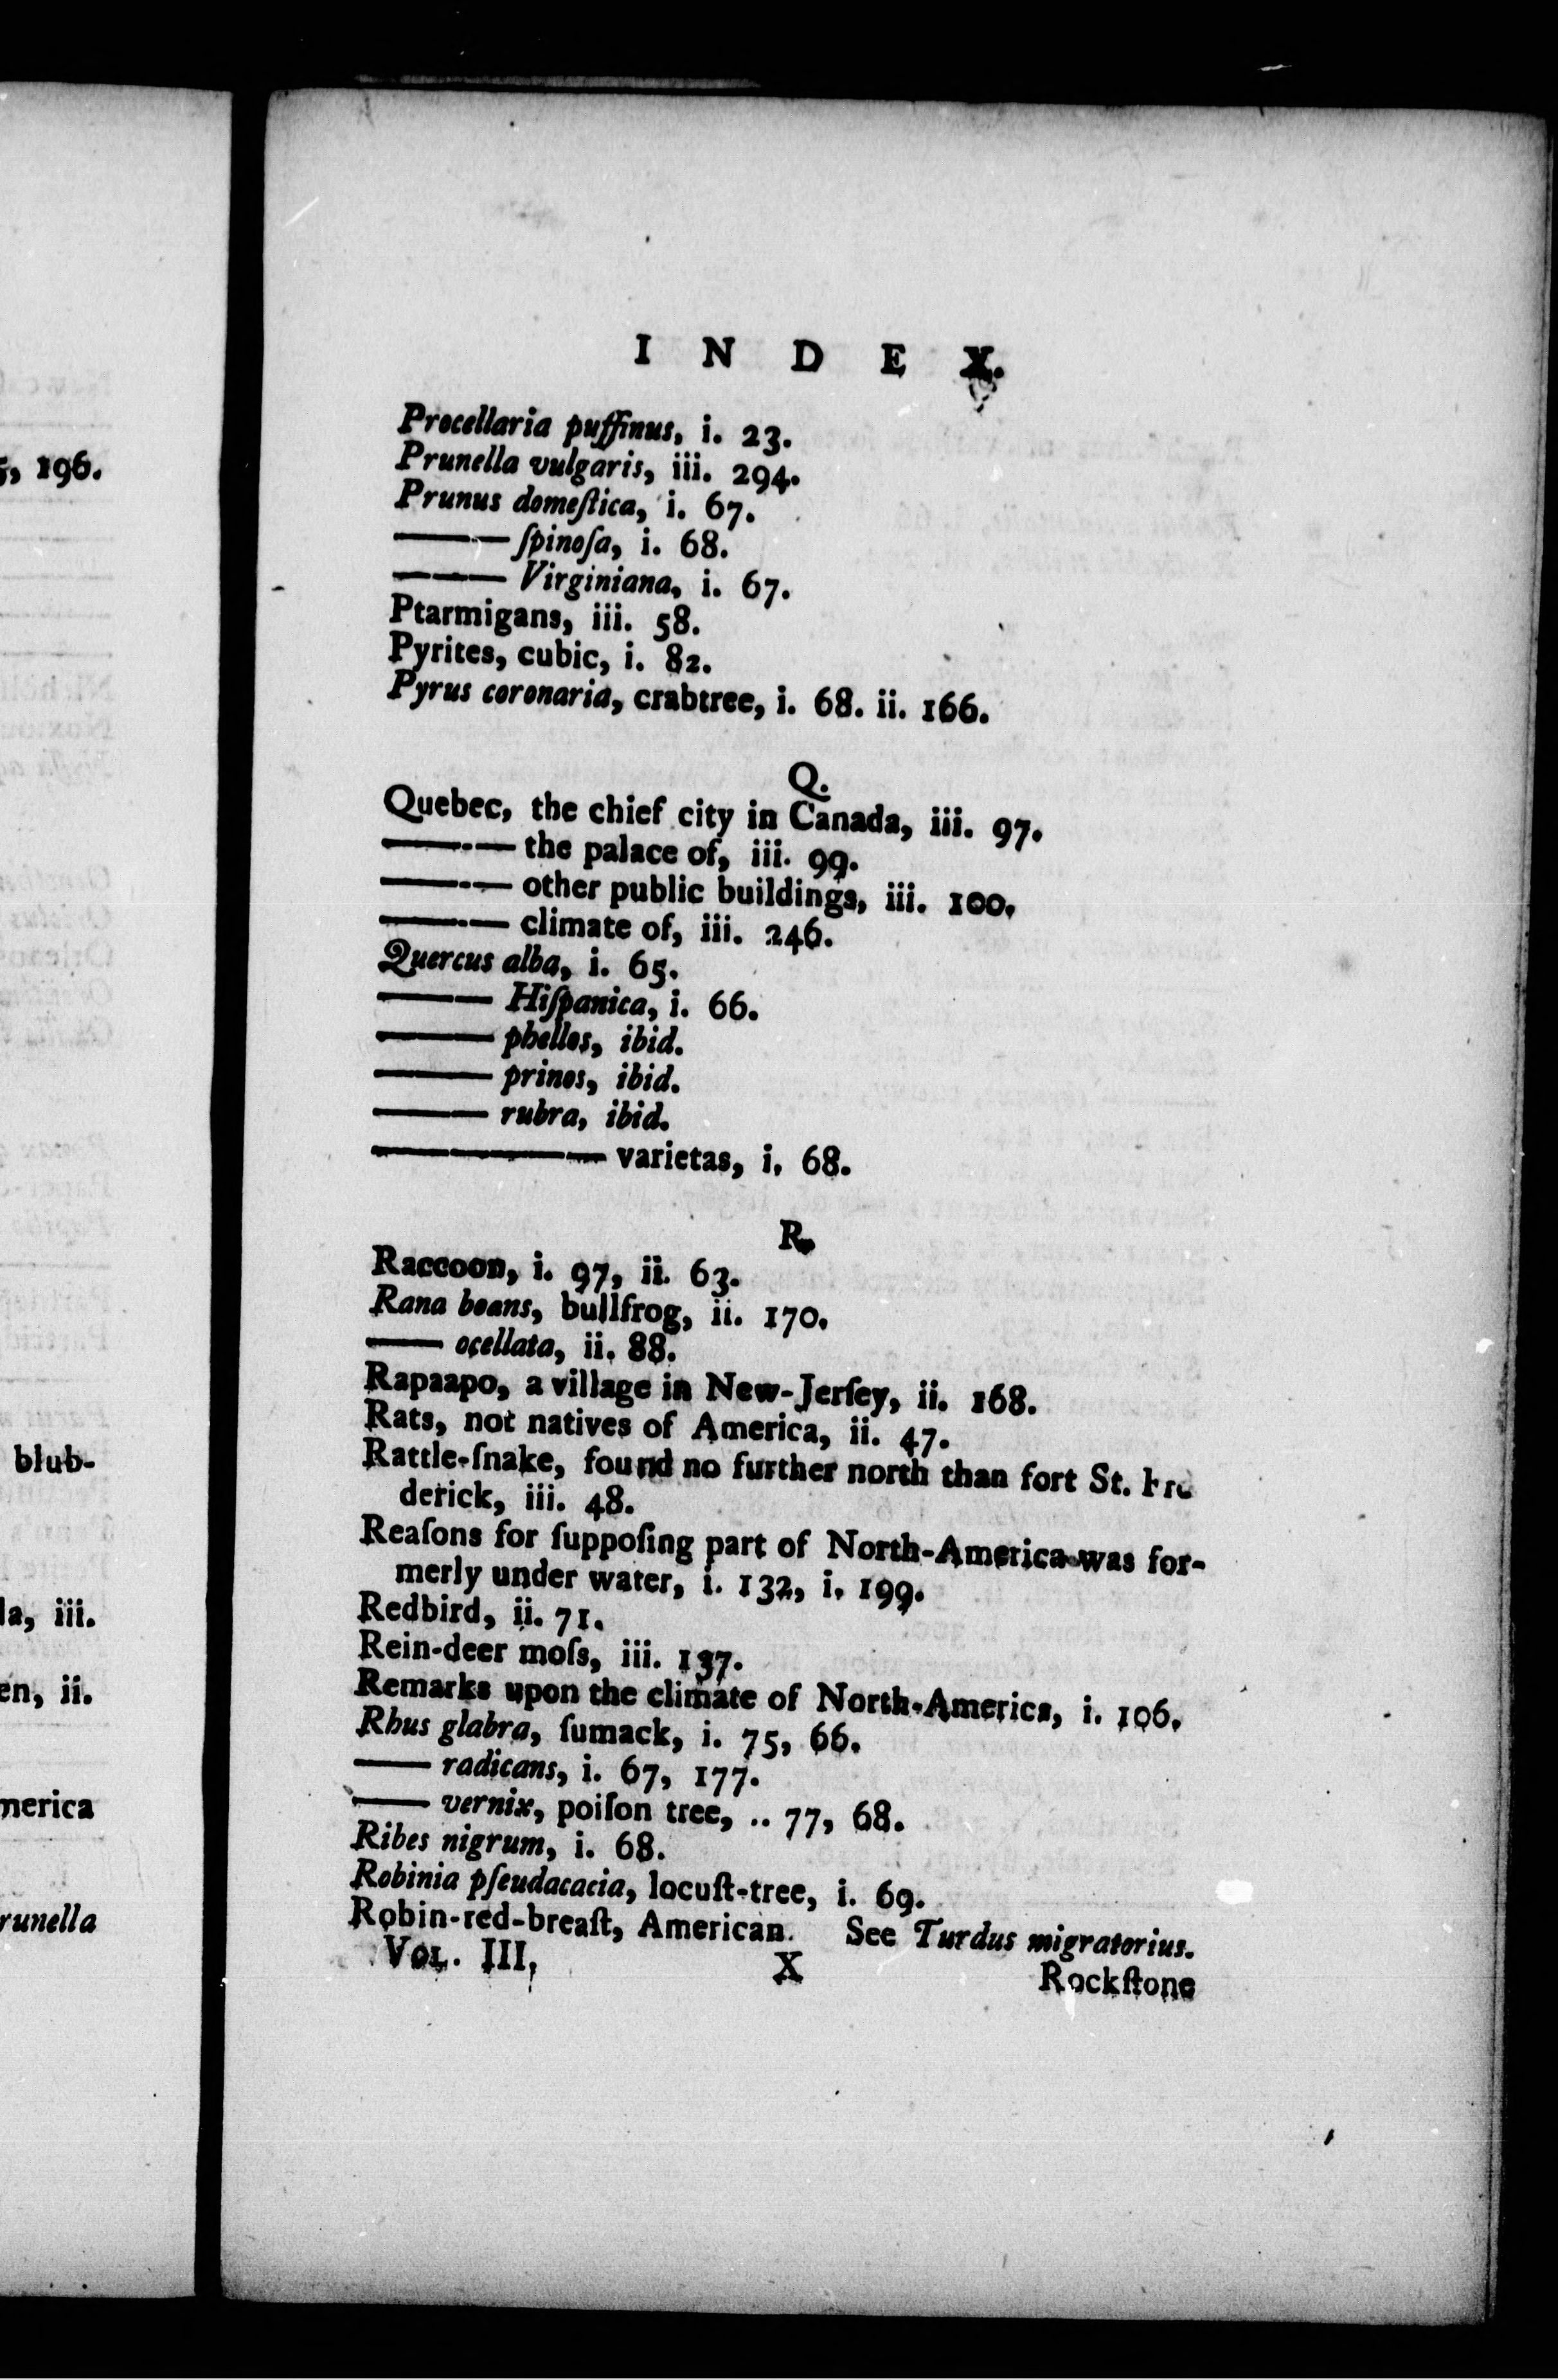 5, 196.
blub-
la, iii.
en, ii.
merica
runella
I N D E X.
Procellaria puffinus, i. 23.
Prunella vulgaris, iii. 294.
Prunus domeſtica, i. 67.
——— ſpinoſa, i. 68.
——— Virginiana, i. 67.
Ptarmigans, iii. 58.
Pyrites, cubic, i. 82.
Pyrus coronaria, crabtree, i. 68. ii. 166.
Q.
Quebec, the chief city in Canada, iii. 97.
——— the palace of, iii. 99.
——— other public buildings, iii. 100.
——— climate of, iii. 246.
Quercus alba, i. 65.
——— Hiſpanica, i. 66.
——— phellos, ibid.
——— prinos, ibid.
——— rubra, ibid.
—————— varietas, i. 68.
R.
Raccoon, i. 97, ii. 63.
Rana boans, bullfrog, ii. 170.
—— ocellata, ii. 88.
Rapaapo, a village in New-Jerſey, ii. 168.
Rats, not natives of America, ii. 47.
Rattle-ſnake, found no further north than fort St. Fre
derick, iii. 48.
Reaſons for ſuppoſing part of North-America was for-
merly under water, i. 132, i. 199.
Redbird, ii. 71.
Rein-deer moſs, iii. 137.
Remarks upon the climate of North-America, i. 106.
Rhus glabra, ſumack, i. 75, 66.
—— radicans, i. 67, 177.
—— vernix, poiſon tree, .. 77, 68.
Ribes nigrum, i. 68.
Robinia pſeudacacia, locuſt-tree, i. 69.
Robin-red-breaſt, American. See Turdus migratorius.
VOL. III, X Rockſtone